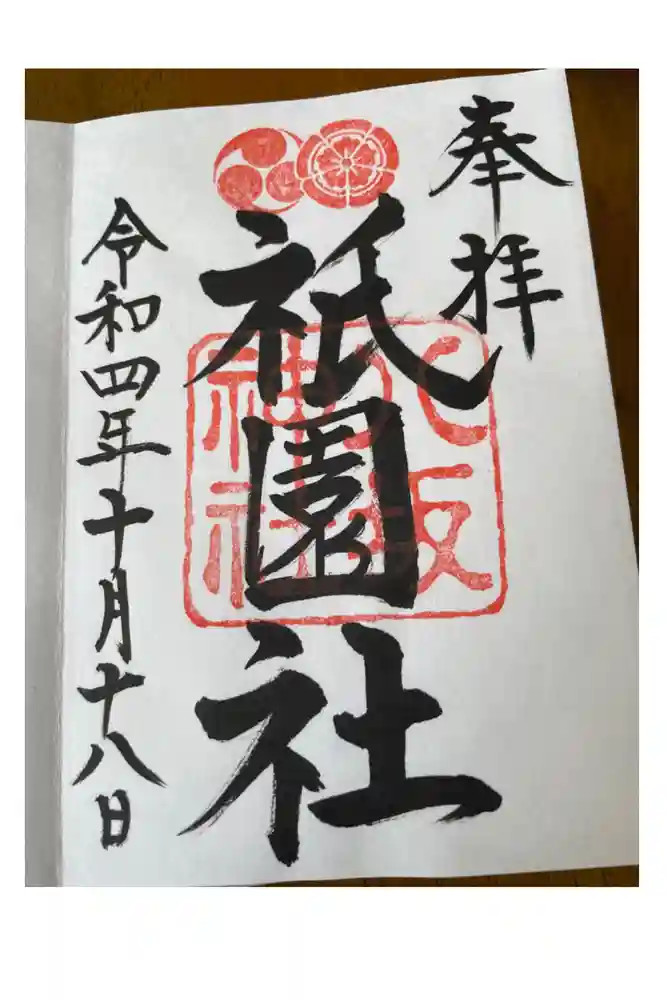 奉拝
祇園社
八坂
神社
令和四年十月十八日